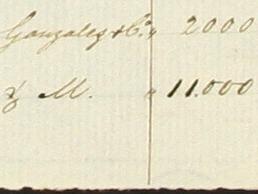 Gonzalez & Cº " 2000
& M. " 11.000